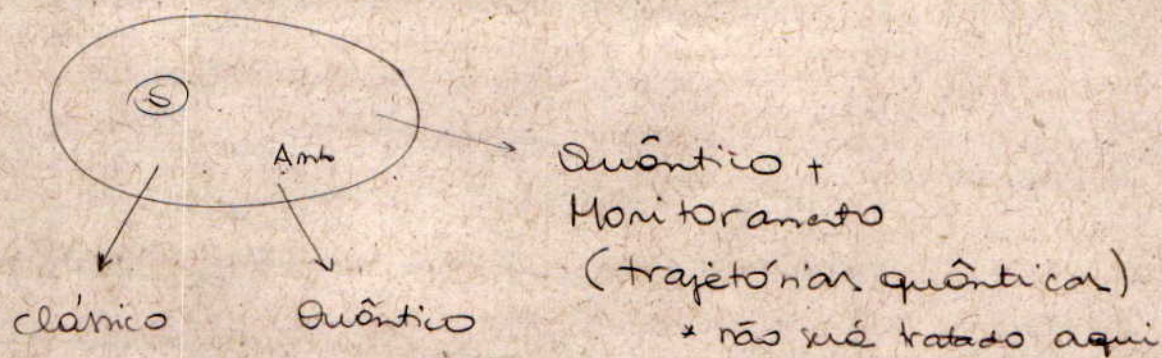 S
Amb
Quântico +
Monitoramento
(trajetórias quânticas)
* não será tratado aqui
clássico
Quântico